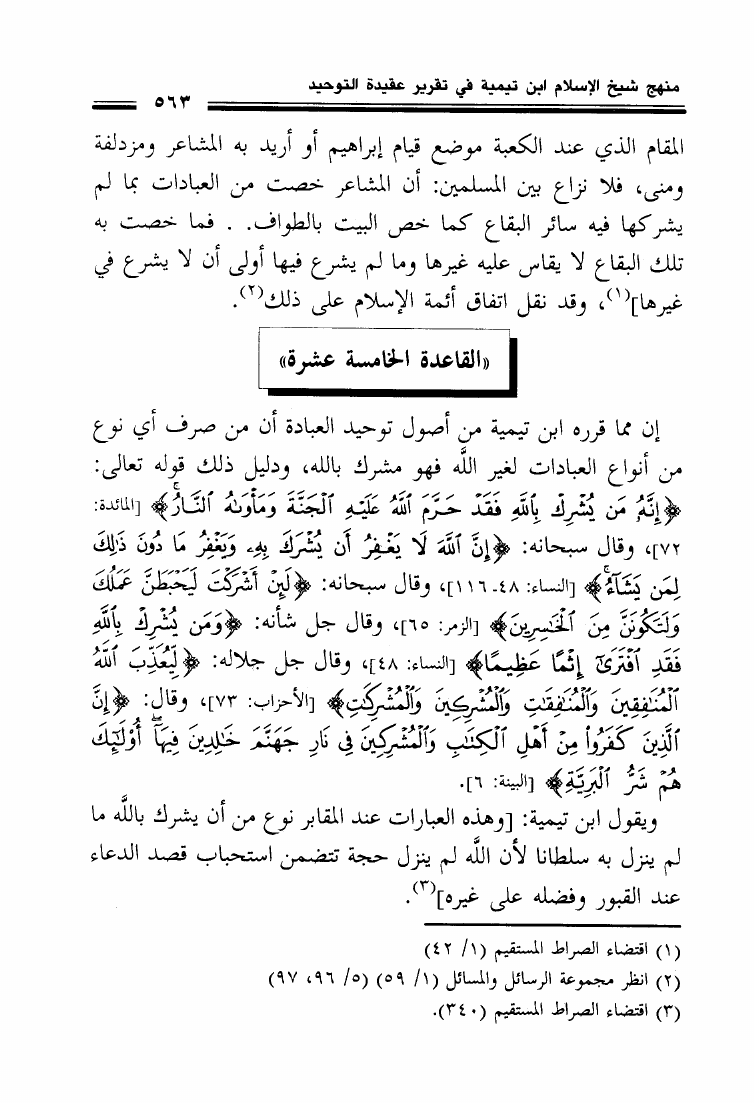 منهج شيخ الإسلام ابن تيمية في تقرير عقيدة التوحيد
٥٦٣
المقام الذي عند الكعبة موضع قيام إبراهيم أو أريد به المشاعر ومزدلفة
ومنى، فلا نزاع بين المسلمين: أن المشاعر خصت من العبادات بما لم
يشركها فيه سائر البقاع كما خص البيت بالطواف. . فما خصت به
تلك البقاع لا يقاس عليه غيرها وما لم يشرع فيها أولى أن لا يشرع في
غيرها](١)، وقد نقل اتفاق أئمة الإسلام على ذلك(٢).
«القاعدة الخامسة عشرة»
إن مما قرره ابن تيمية من أصول توحيد العبادة أن من صرف أي نوع
من أنواع العبادات لغير اللَّه فهو مشرك بالله، ودليل ذلك قوله تعالى:
﴿إِنَّهُۥ مَن يُشْرِكْ بِٱللَّهِ فَقَدْ حَرَّمَ ٱللَّهُ عَلَيْهِ ٱلْجَنَّةَ وَمَأْوَىٰهُ ٱلنَّارُۖ﴾ [المائدة:
٧٢]، وقال سبحانه: ﴿إِنَّ ٱللَّهَ لَا يَغْفِرُ أَن يُشْرَكَ بِهِۦ وَيَغْفِرُ مَا دُونَ ذَٰلِكَ
لِمَن يَشَآءُۚ﴾ [النساء: ٤٨ـ١١٦]، وقال سبحانه: ﴿لَئِنْ أَشْرَكْتَ لَيَحْبَطَنَّ عَمَلُكَ
وَلَتَكُونَنَّ مِنَ ٱلْخَٰسِرِينَ﴾ [الزمر: ٦٥]، وقال جل شأنه: ﴿وَمَن يُشْرِكْ بِٱللَّهِ
فَقَدِ ٱفْتَرَىٰٓ إِثْمًا عَظِيمًا﴾ [النساء: ٤٨]، وقال جل جلاله: ﴿لِّيُعَذِّبَ ٱللَّهُ
ٱلْمُنَٰفِقِينَ وَٱلْمُنَٰفِقَٰتِ وَٱلْمُشْرِكِينَ وَٱلْمُشْرِكَٰتِ﴾ [الأحزاب: ٧٣]، وقال: ﴿إِنَّ
ٱلَّذِينَ كَفَرُوا۟ مِنْ أَهْلِ ٱلْكِتَٰبِ وَٱلْمُشْرِكِينَ فِى نَارِ جَهَنَّمَ خَٰلِدِينَ فِيهَآۚ أُو۟لَٰٓئِكَ
هُمْ شَرُّ ٱلْبَرِيَّةِ﴾ [البينة: ٦].
ويقول ابن تيمية: [وهذه العبارات عند المقابر نوع من أن يشرك باللَّه ما
لم ينزل به سلطانا لأن اللَّه لم ينزل حجة تتضمن استحباب قصد الدعاء
عند القبور وفضله على غيره](٣).
(١) اقتضاء الصراط المستقيم (١/ ٤٢)
(٢) انظر مجموعة الرسائل والمسائل (١/ ٥٩) (٥/ ٩٦، ٩٧)
(٣) اقتضاء الصراط المستقيم (٣٤٠).